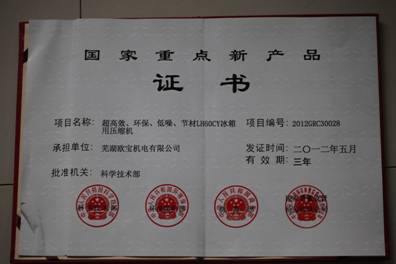 国家重点新产品
证书
项目名称: 超高效、环保、低噪、节材LH60CY冰箱用压缩机
项目编号: 2012GRC30028
承担单位: 芜湖欧宝机电有限公司
发证时间: 二〇一二年五月
有效期: 三年
批准机关: 科学技术部